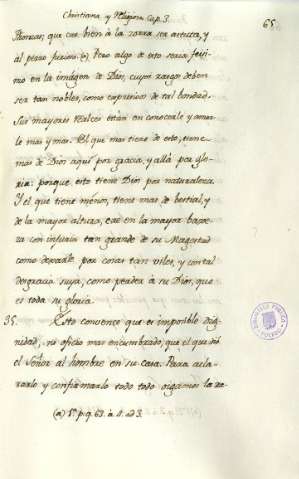 Christiana y Religiosa Cap. 3.
65
honrar, que cae bien à la zorra ser astuta, y
al perro furioso. (a) Pero algo de esto seria feisi-
mo en la imágen de Dios, cuyos rasgos deben
ser tan nobles, como expresivos de tal bondad.
Sus mayores realces están en conocerle y amar-
le mas y mas. El que mas tiene de esto, tiene
mas de Dios aquí por gracia, y allá por glo-
ria: porque esto tiene Dios por naturaleza.
Y el que tiene ménos, tiene mas de bestial, y
de la mayor altura, cae en la mayor baxe-
za con injuria tan grande de su Magestad
como dexarle por cosas tan viles, y con tal
desgracia suya, como perder à su Dios, que
es toda su gloria.
35. Esto convence que es imposible dig-
nidad, ni oficio mas encumbrado, que el que dió
el Señor al hombre en su casa. Para acla-
rarlo y confirmarlo todo todo oigamos la ra-
(a) 1ª. p. q. 63. à 4. ad 3.
BIBLIOTECA PUBLICA
TOLEDO